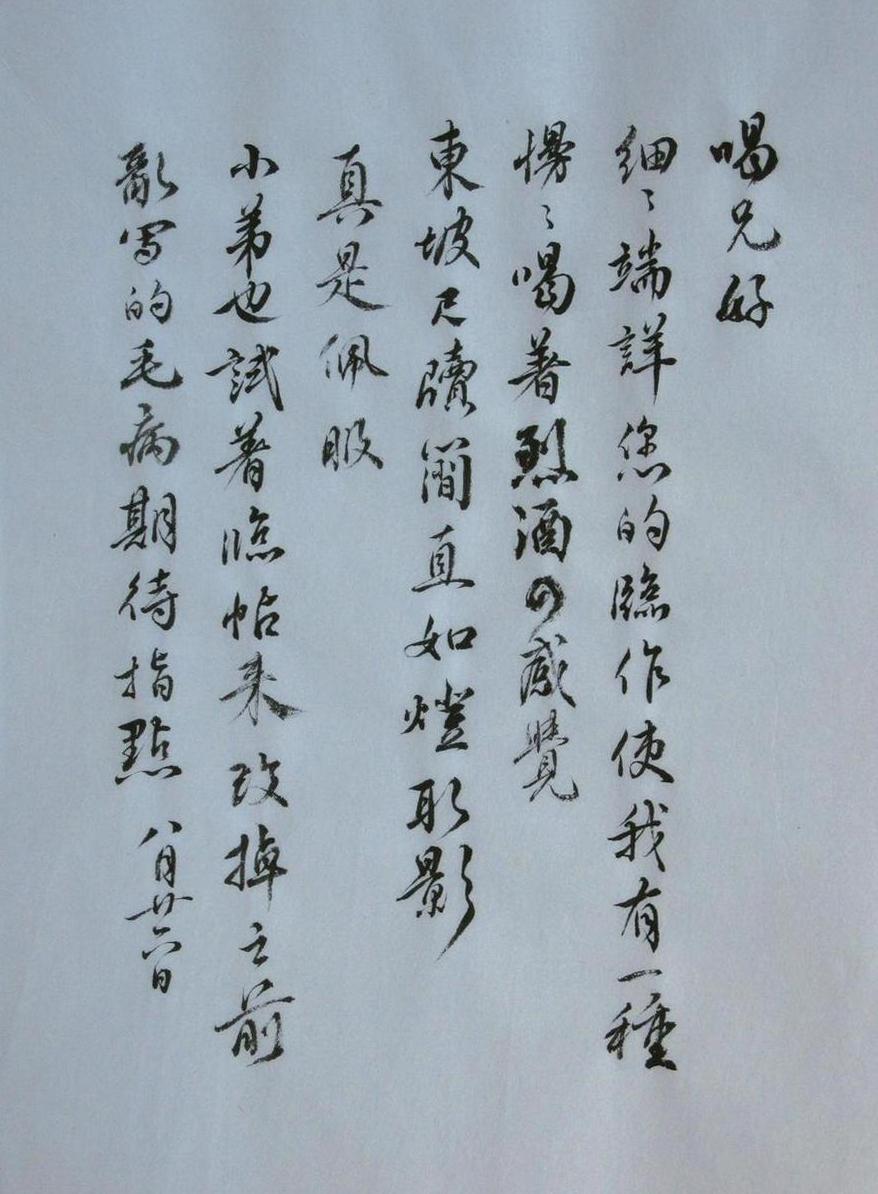 喝兄好
細〻端詳您的臨作使我有一種
慢〻喝著烈酒の感覺
東坡尺牘簡直如燈取影
真是佩服
小弟也試着臨帖来改掉之前
亂寫的毛病期待指點 八月廿六日